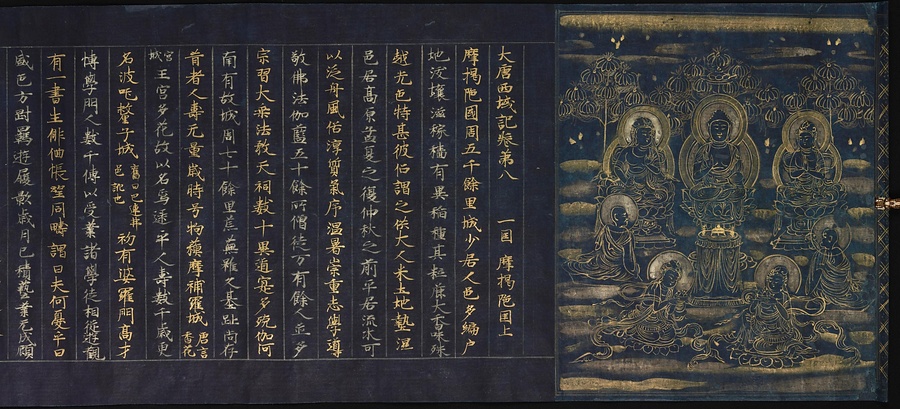 大唐西域記卷第八　一國　摩揭陁國上
摩揭陁國周五千餘里城少居人邑多編户
地沃壤滋稼穡有異稻種其粒麁大香味殊
越光色特甚彼俗謂之供大人米土地墊濕
邑居高原孟夏之後仲秋之前平居流水可
以泛舟風俗淳質氣序温暑崇重志學尊
敬佛法伽藍五十餘所僧徒万有餘人並多
宗習大乘法教天祠數十異道寔多殑伽河
南有故城周七十餘里荒蕪雖久基趾尚存
昔者人壽无量歲時号拘蘓摩補羅城唐言香花
宮城王宮多花故以名焉逮乎人壽數千歲更
名波吒釐子城舊曰巴連弗邑訛也初有婆羅門高才
博學門人數千傳以受業諸學徒相從遊觀
有一書生俳佪悵望同疇謂曰夫何憂乎曰
盛色方剛羈遊履影歲月已積藝業无成顧